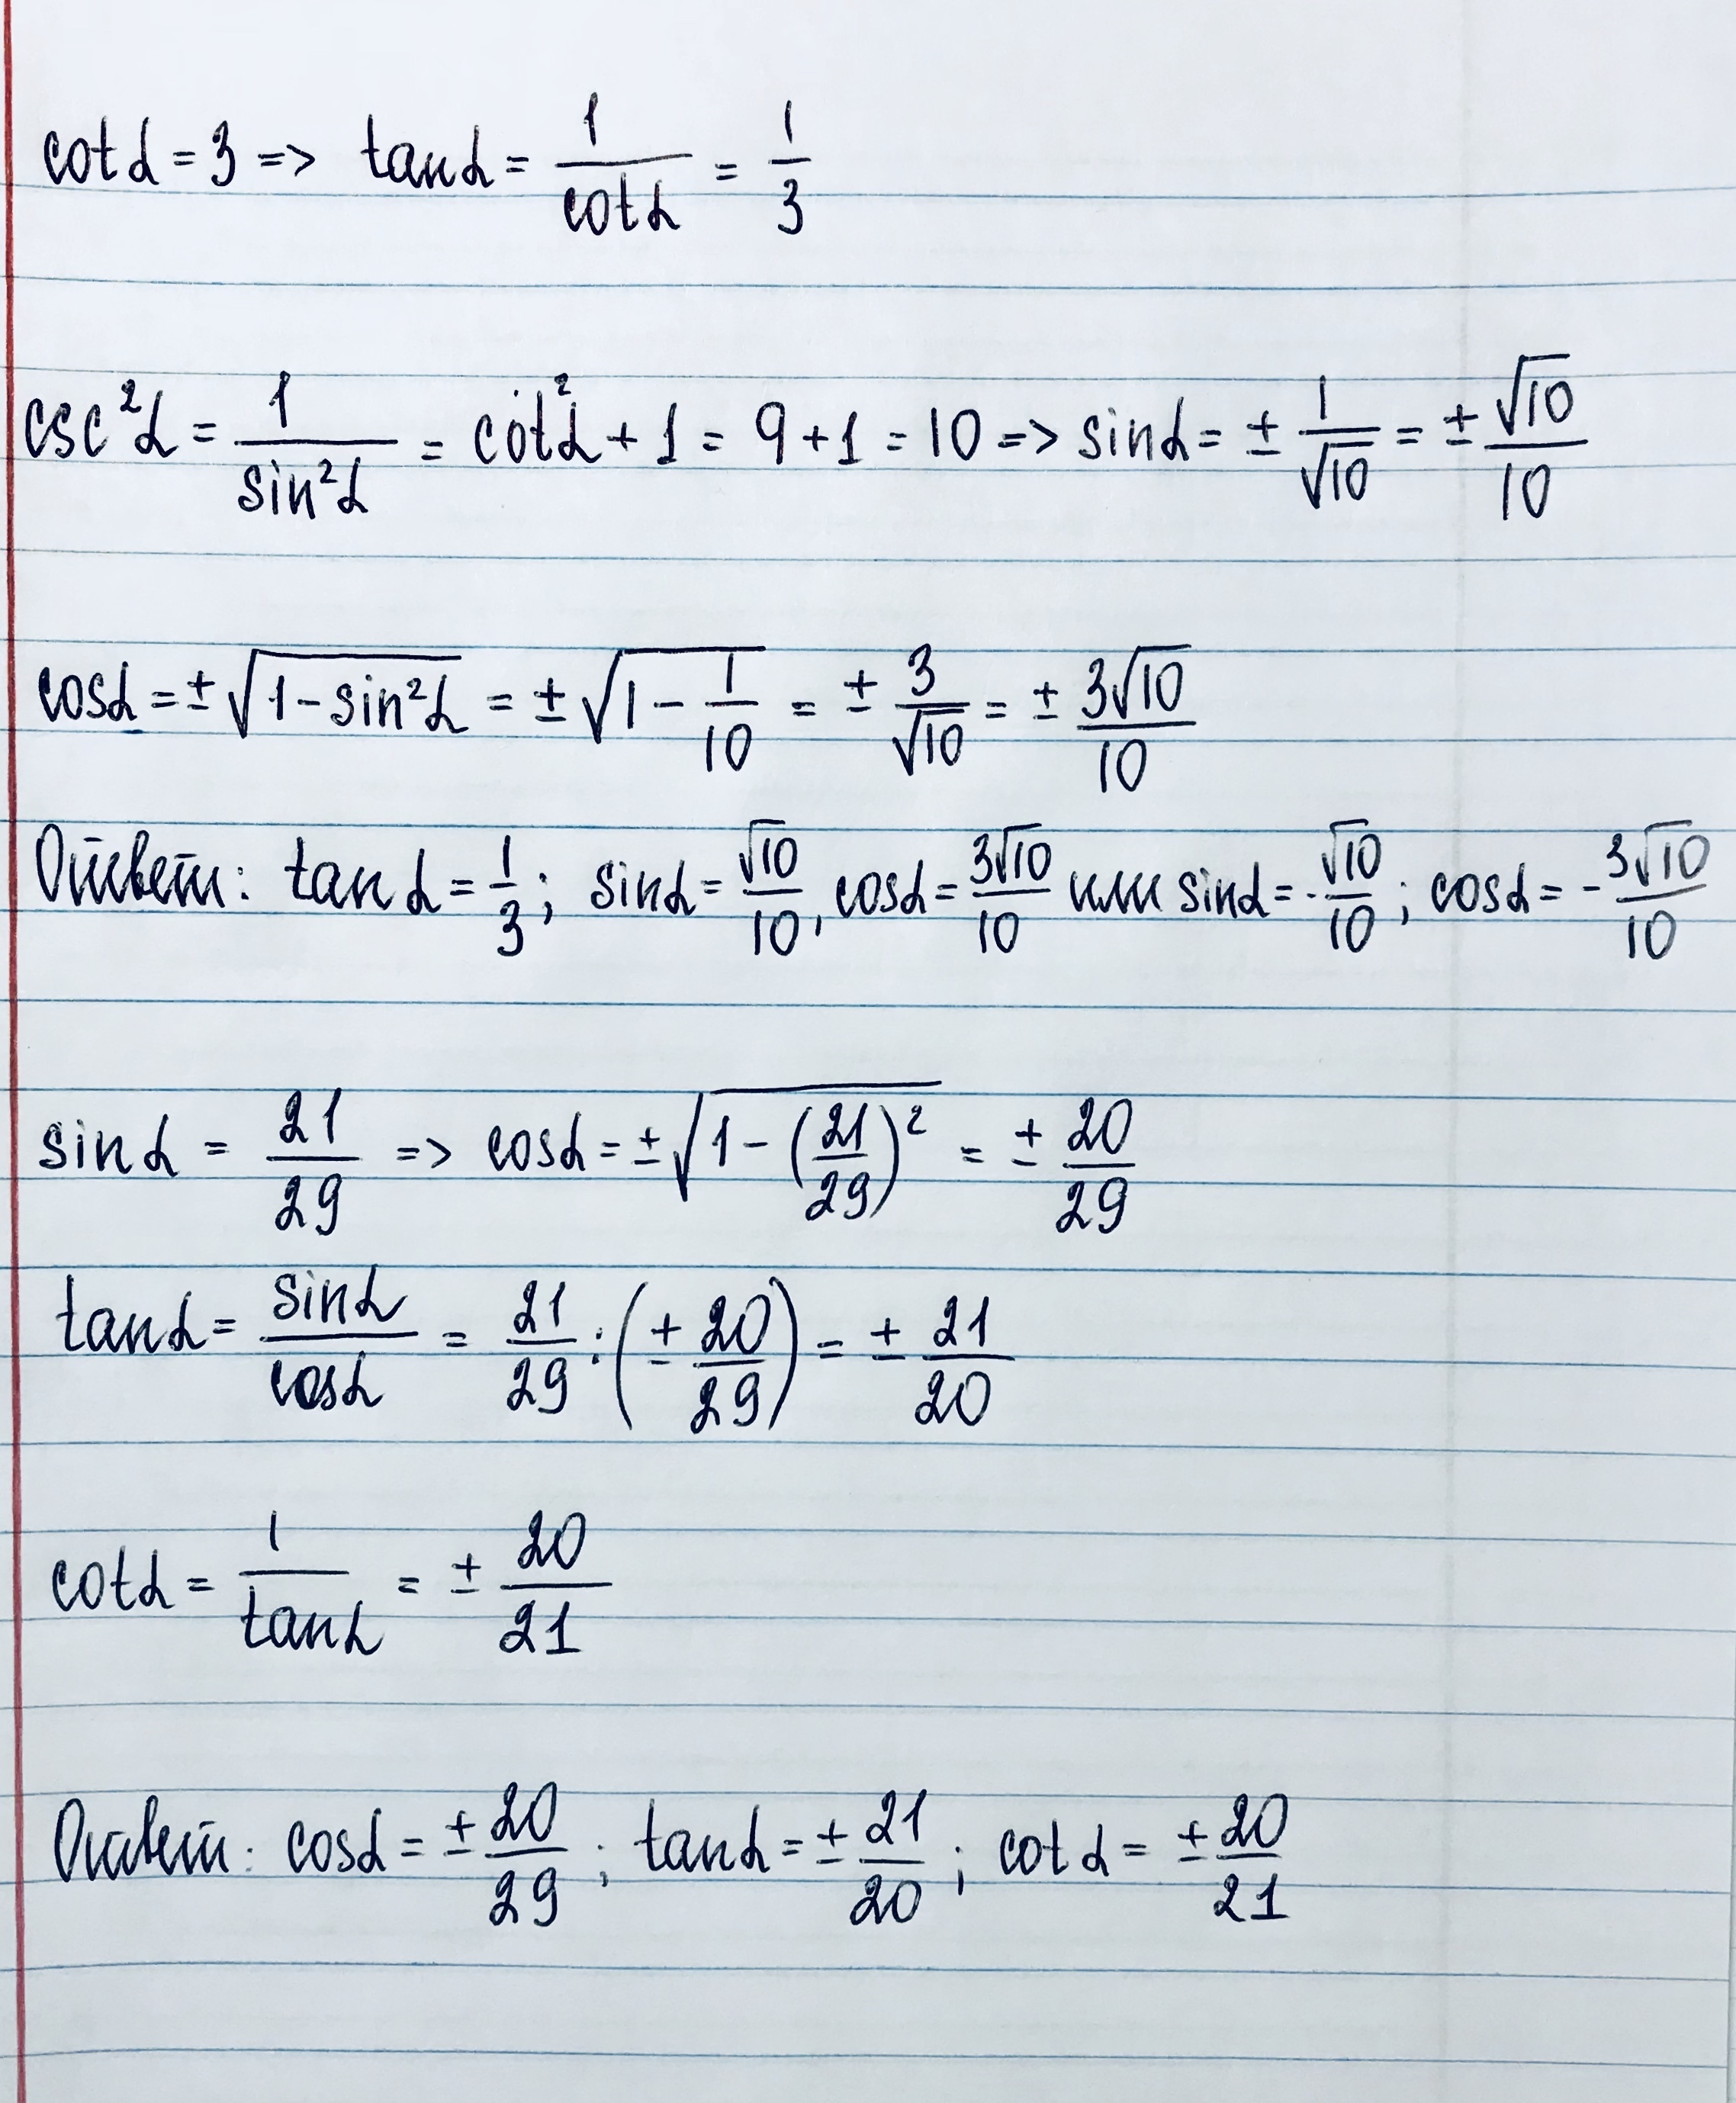 cot α = 3 => tan α = 1/cot α = 1/3
csc²α = 1/sin²α = cot²α + 1 = 9 + 1 = 10 => sin α = ± 1/√10 = ± √10/10
cos α = ± √(1 - sin²α) = ± √(1 - 1/10) = ± 3/√10 = ± 3√10/10
Ответ: tan α = 1/3; sin α = √10/10, cos α = 3√10/10 или sin α = -√10/10; cos α = -3√10/10
sin α = 21/29 => cos α = ± √(1 - (21/29)²) = ± 20/29
tan α = sin α/cos α = 21/29 : (± 20/29) = ± 21/20
cot α = 1/tan α = ± 20/21
Ответ: cos α = ± 20/29; tan α = ± 21/20; cot α = ± 20/21